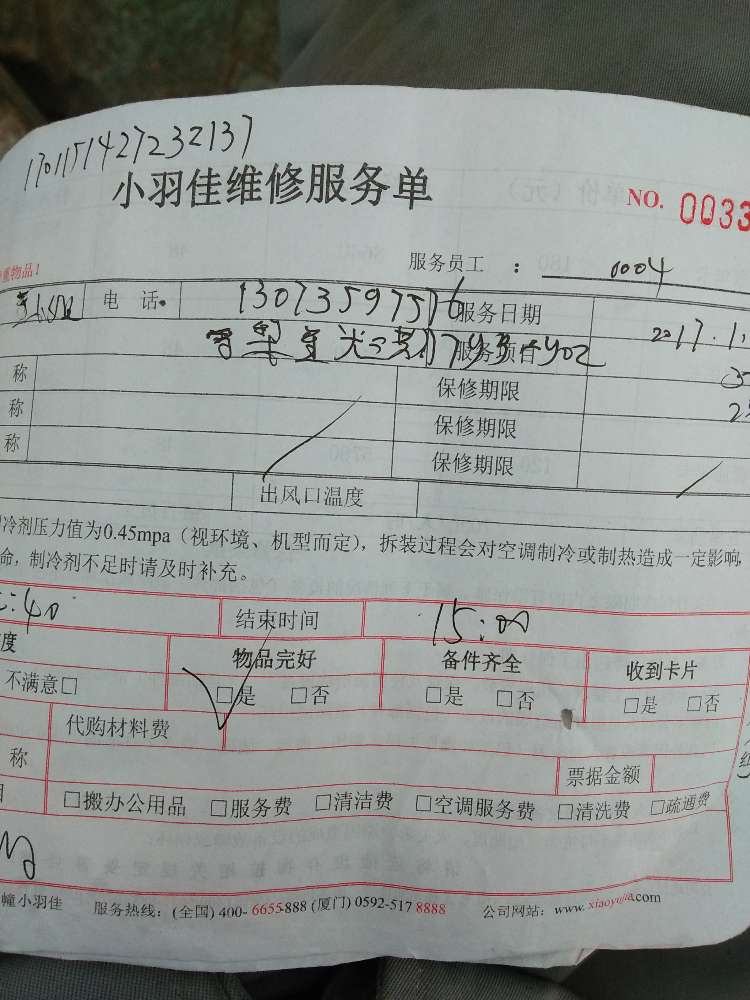 1701151427232137
小羽佳维修服务单 NO. 0033
重物品!
服务员工 : 0004
电 话 13073597576 服务日期 2017.1.
服务项目
称 保修期限
称 保修期限
称 保修期限
出风口温度
冷剂压力值为0.45mpa（视环境、机型而定），拆装过程会对空调制冷或制热造成一定影响,
命，制冷剂不足时请及时补充。
:40 结束时间 15:00
度 物品完好 备件齐全 收到卡片
不满意□ □是 □否 □是 □否 □是 □否
代购材料费
称 票据金额
□搬办公用品 □服务费 □清洁费 □空调服务费 □清洗费 □疏通费
幢小羽佳 服务热线：(全国) 400-6655888 (厦门) 0592-517 8888 公司网站：www. xiaoyujia.com